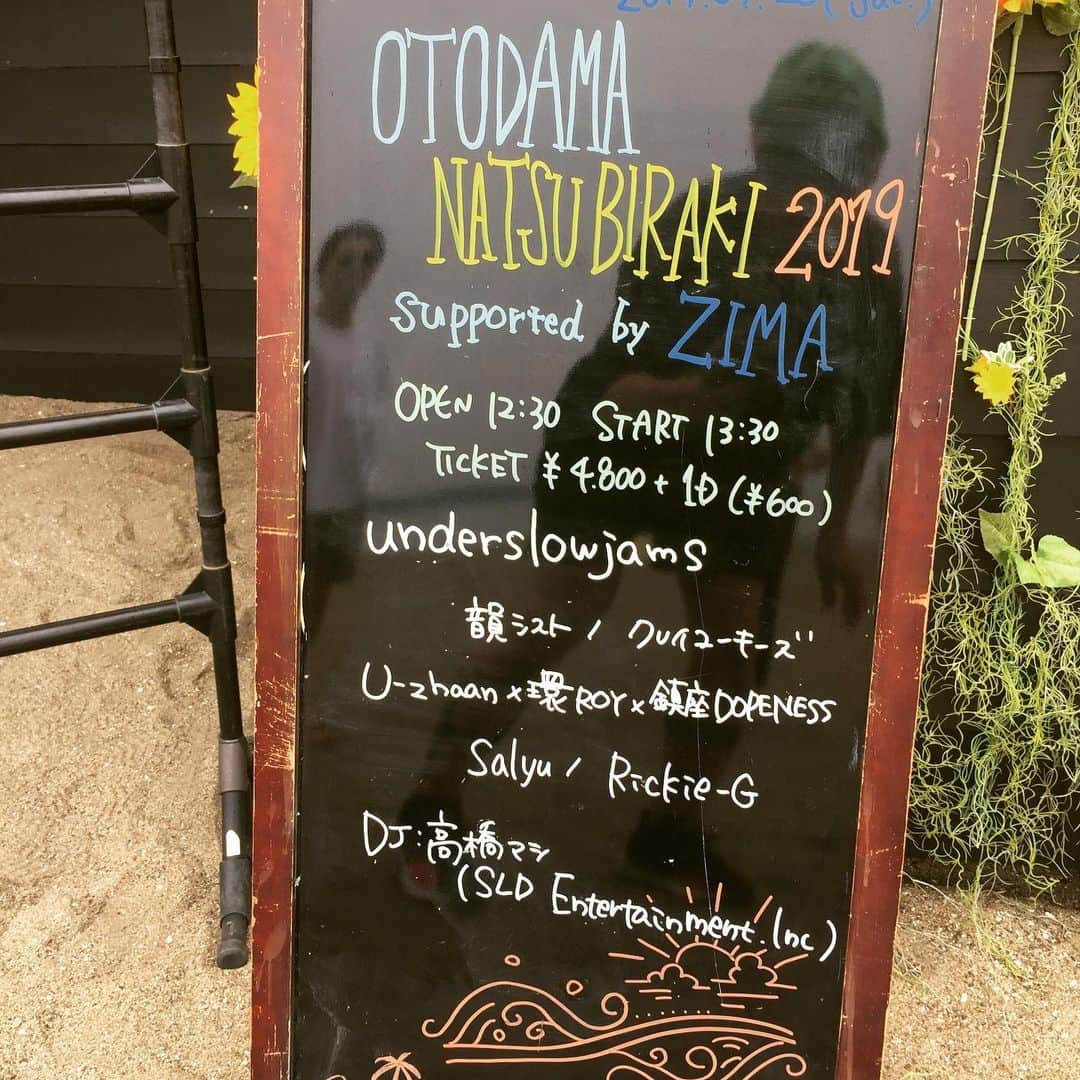 OTODAMA
NATSUBIRAKI 2019
supported by ZIMA
OPEN 12:30 START 13:30
TICKET ¥4.800 + 1D (¥600)
underslowjams
韻シスト / クレイユーキーズ
U-zhaan × 環ROY × 鎮座DOPENESS
Salyu / Rickie-G
DJ:高橋マシ
(SLD Entertainment.Inc)